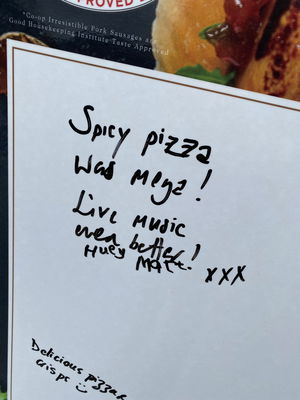 PROVED
"Co-op Irresistible Pork Sausages a
Good Housekeeping Institute Taste Approved
Spicy pizza
was mega!
Live music
even better!
Huey Mat
xxx
Delicious pizzas
crisps